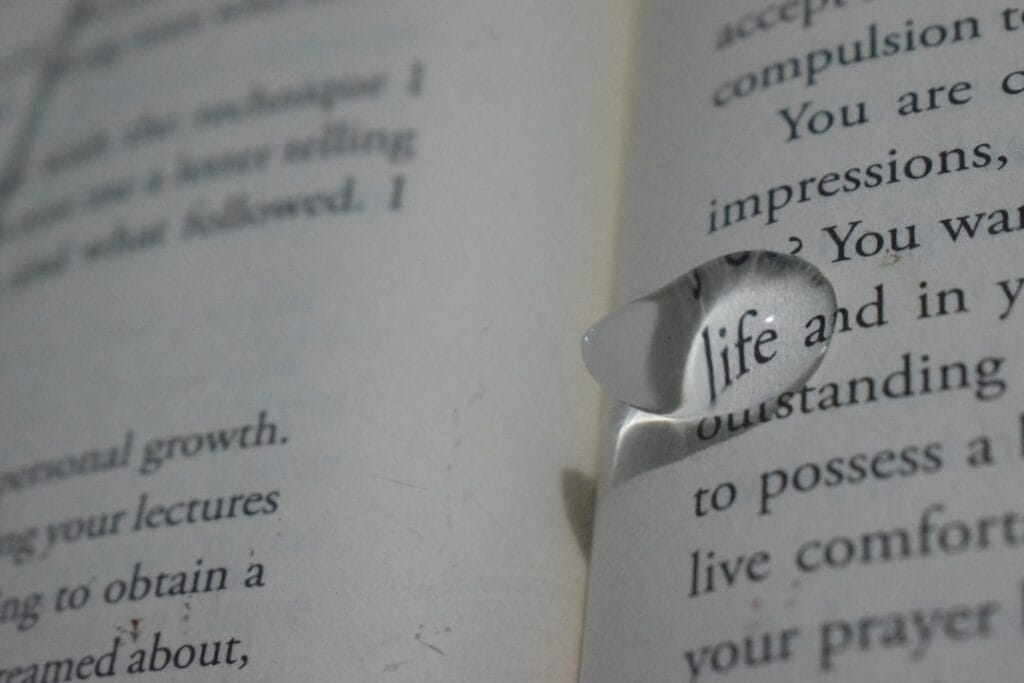 with the technique I
a lesser telling
and what followed. I
personal growth.
ing your lectures
ing to obtain a
reamed about,
accept
compulsion to
You are c
impressions,
? You wan
life and in y
outstanding
to possess a
live comfort
your prayer